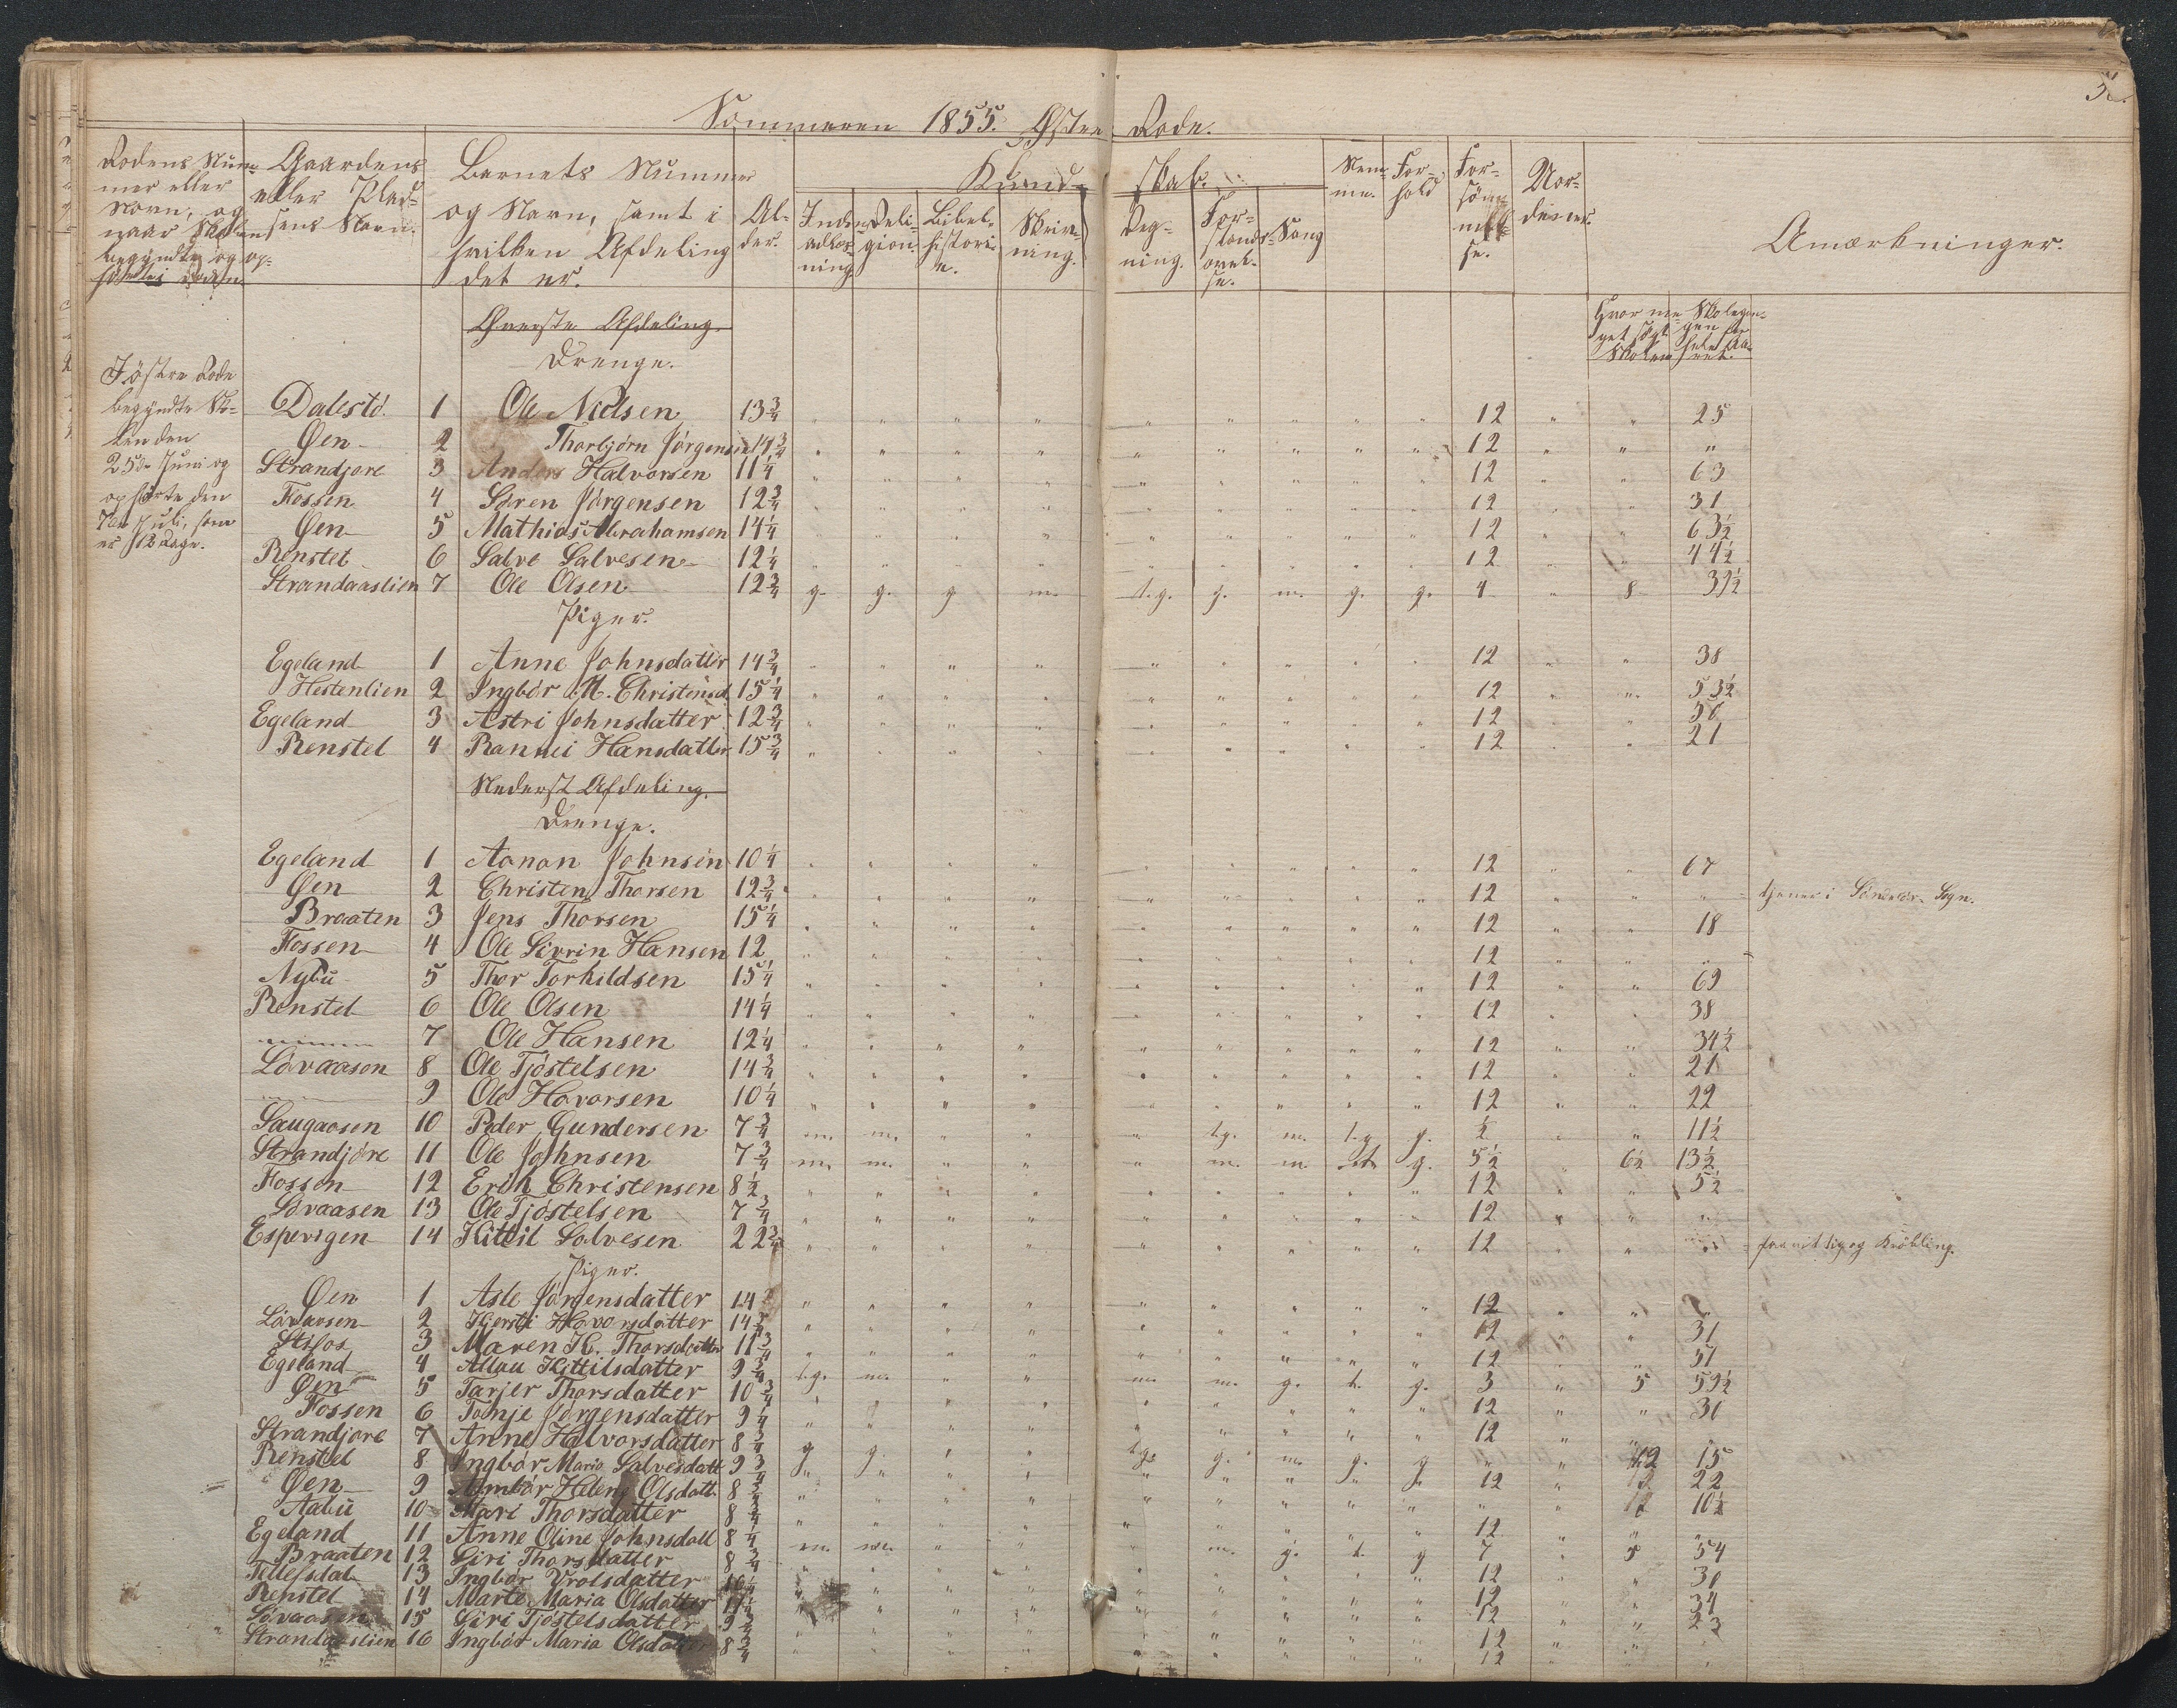 Sommeren 1855. Østre Rode.
Rodens Nummer eller Navn, og naar Skolen begyndte og ophørte i Roden.
Gaardens eller Pladsens Navn.
Barnets Nummer og Navn, samt i hvilken Afdeling det er.
Alder.
Kundskab.
Indenadlæsning.
Religion.
Bibelhistorie.
Skrivning.
Regning.
Forstandsøvelse.
Sang
Nemme.
Forhold
Forsømmelse.
Anmærkninger.
Øverste Afdeling.
Drenge.
I østre Rode
begyndte Skolen den
25de Juni og
ophørte den
7de Juli, som
er 12 Dage.
Dalestö. 1 Ole Nielsen 13¾ 12 25
Øen 2 Thorbjörn Jörgensen 14¾ 12
Strandjore 3 Anders Halvorsen 11¼ 12 63
Fossen 4 Sören Jörgensen 12¾ 12 31
Øen 5 Mathias Abrahamsen 14¼ 12 63½
Renstel 6 Salve Salvesen 12¼ 12 44½
Strandaaslien 7 Ole Olsen 12¾ g. g. g m. t.g. g. m. g. g. 4 8 39½
Piger.
Egeland 1 Anne Johnsdatter 14¾ 12 38
Hestenlien 2 Ingbör M. Christensd. 15¼ 12 53½
Egeland 3 Astri Johnsdatter 12¾ 12 56
Renstel 4 Rannei Hansdatter 15¾ 12 21
Nederst Afdeling.
Drenge.
Egeland 1 Aanon Johnsen 10¼ 12 67
Øen 2 Christen Thorsen 12¾ 12 tjener i Sogn.
Braaten 3 Jens Thorsen 15¼ 12 18
Fossen 4 Ole Sivrin Hansen 12 12
Nybu 5 Thor Torkildsen 15¼ 12 69
Renstel 6 Ole Olsen 14¼ 12 38
7 Ole Hansen 12¼ 12 34½
Lövaasen 8 Ole Tjöstelsen 14¾ 12 21
9 Ole Havorsen 10¼ 12 22
Saugaasen 10 Peder Gundersen 7¾ m. m. t.g. m. t.g g. ½ 11½
Strandjöre 11 Ole Johnsen 7¾ m. m. m. m g. 5½ 6½ 13½
Fossen 12 Erik Christensen 8½ 12 5½
Lövaasen 13 Ole Tjöstelsen 7¾ 12
Espevigen 14 Kittil Salvesen 22¾ 12 Krøbling.
Piger.
Øen 1 Asle Jörgensdatter 14 12
Lövaasen 2 Kjersti Havorsdatter 14¾ 12 31
Stifos 3 Maren K. Thorsdatter 11¾ 12 51
Egeland 4 Allau Kittilsdatter 9¾ t.g. m. m. m. g. t. g. 3 5 59½
Øen 5 Tarjer Thorsdatter 10¾ 12 31
Fossen 6 Tonje Jörgensdatter 9¼ 12
Strandjore 7 Anne Halvorsdatter 8¾ g g. t.g. g. m. g. g 12 15
Renstel 8 Ingbör Maria Salvesdatt 9¾ 12 22
Øen 9 Helene Olsdatt. 8¾ 10½
Aabü 10 Mari Thorsdatter 8¾ 12
Egeland 11 Anne Oline Johnsdatt 8¼ m. m. m. g. t. g 7 5 54
Braaten 12 Siri Thorsdatter 8¾ 12
Tellefsdal 13 Ingbör Vrolsdatter 12
Renstel 14 Marte Maria Olsdatter 12 34
Lövaasen 15 Siri Tjöstelsdatter 9¾ 12 23
Strandaaslien 16 Ingbör Maria Olsdatter 8¾ 12